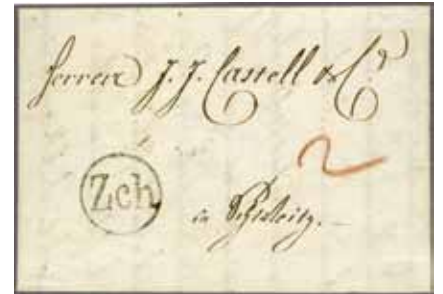 Herren J. J. Castell & Co
2
Zch
in